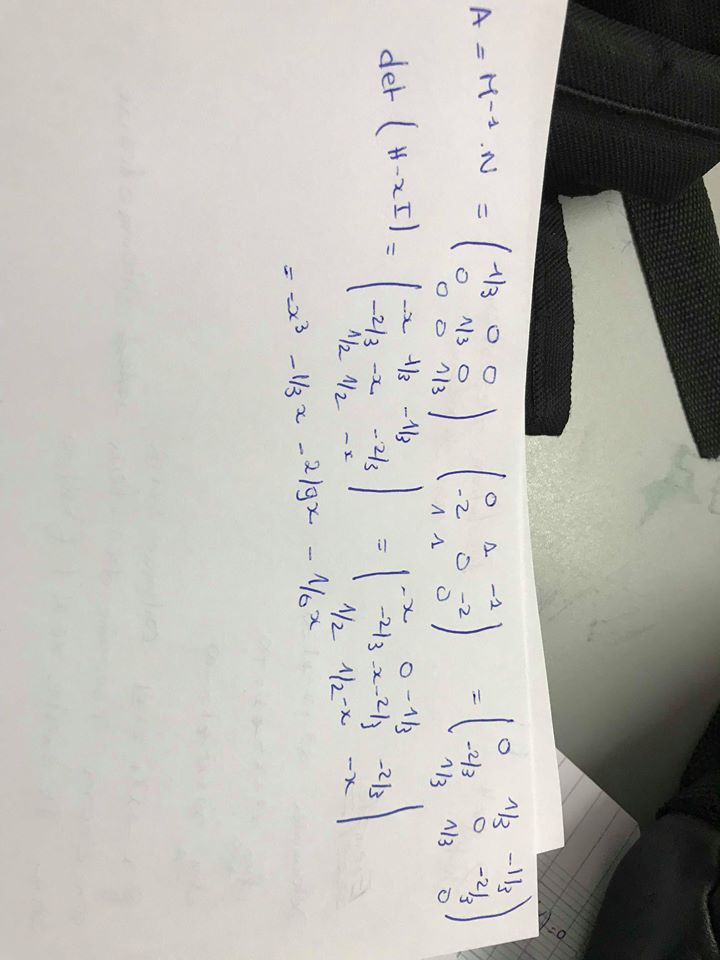 A = M-1.N = ( 1/3 0 0
0 1/3 0
0 0 1/3 ) ( 0 1 -1
-2 0 -2
1 1 0 ) = ( 0 1/3 -1/3
-2/3 0 -2/3
1/3 1/3 0 )
det (H-xI) = ( -x 1/3 -1/3
-2/3 -x -2/3
1/2 1/2 -x ) = ( -x 0 -1/3
-2/3 -x-2/3 -2/3
1/2 1/2-x -x )
= -x³ - 1/3x - 2/9x - 1/6x
)=0